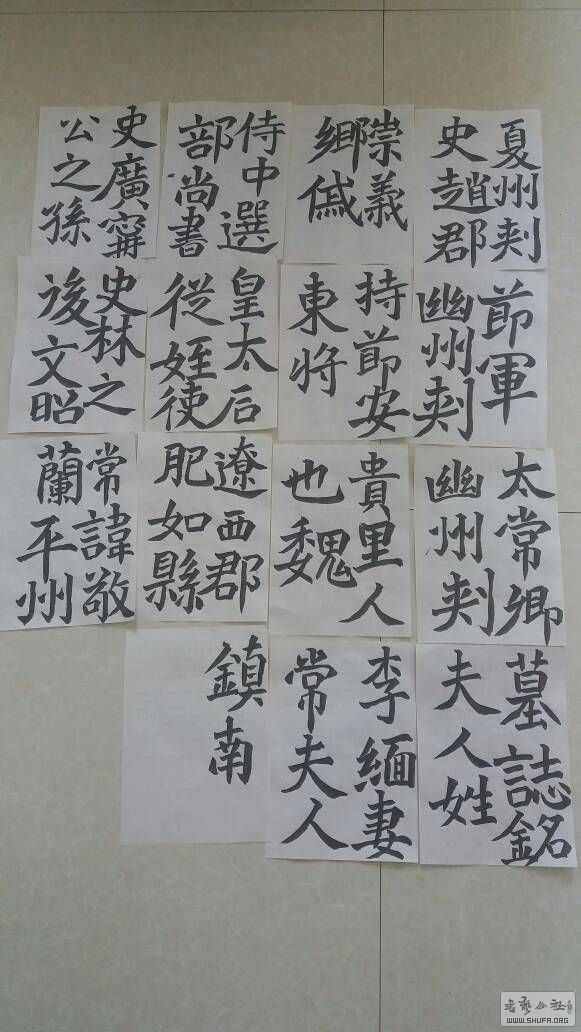 夏州刾
史趙郡
崇義
鄉傶
侍中選
部尚書
史廣寧
公之孫
節軍
幽州刾
持節安
東將
皇太后
從姪使
史林之
後文昭
太常卿
幽州刾
貴里人
也魏
遼西郡
肥如縣
常諱敬
蘭平州
墓誌銘
夫人姓
李緬妻
常夫人
鎮南
书艺公社
WWW.SHUFA.ORG